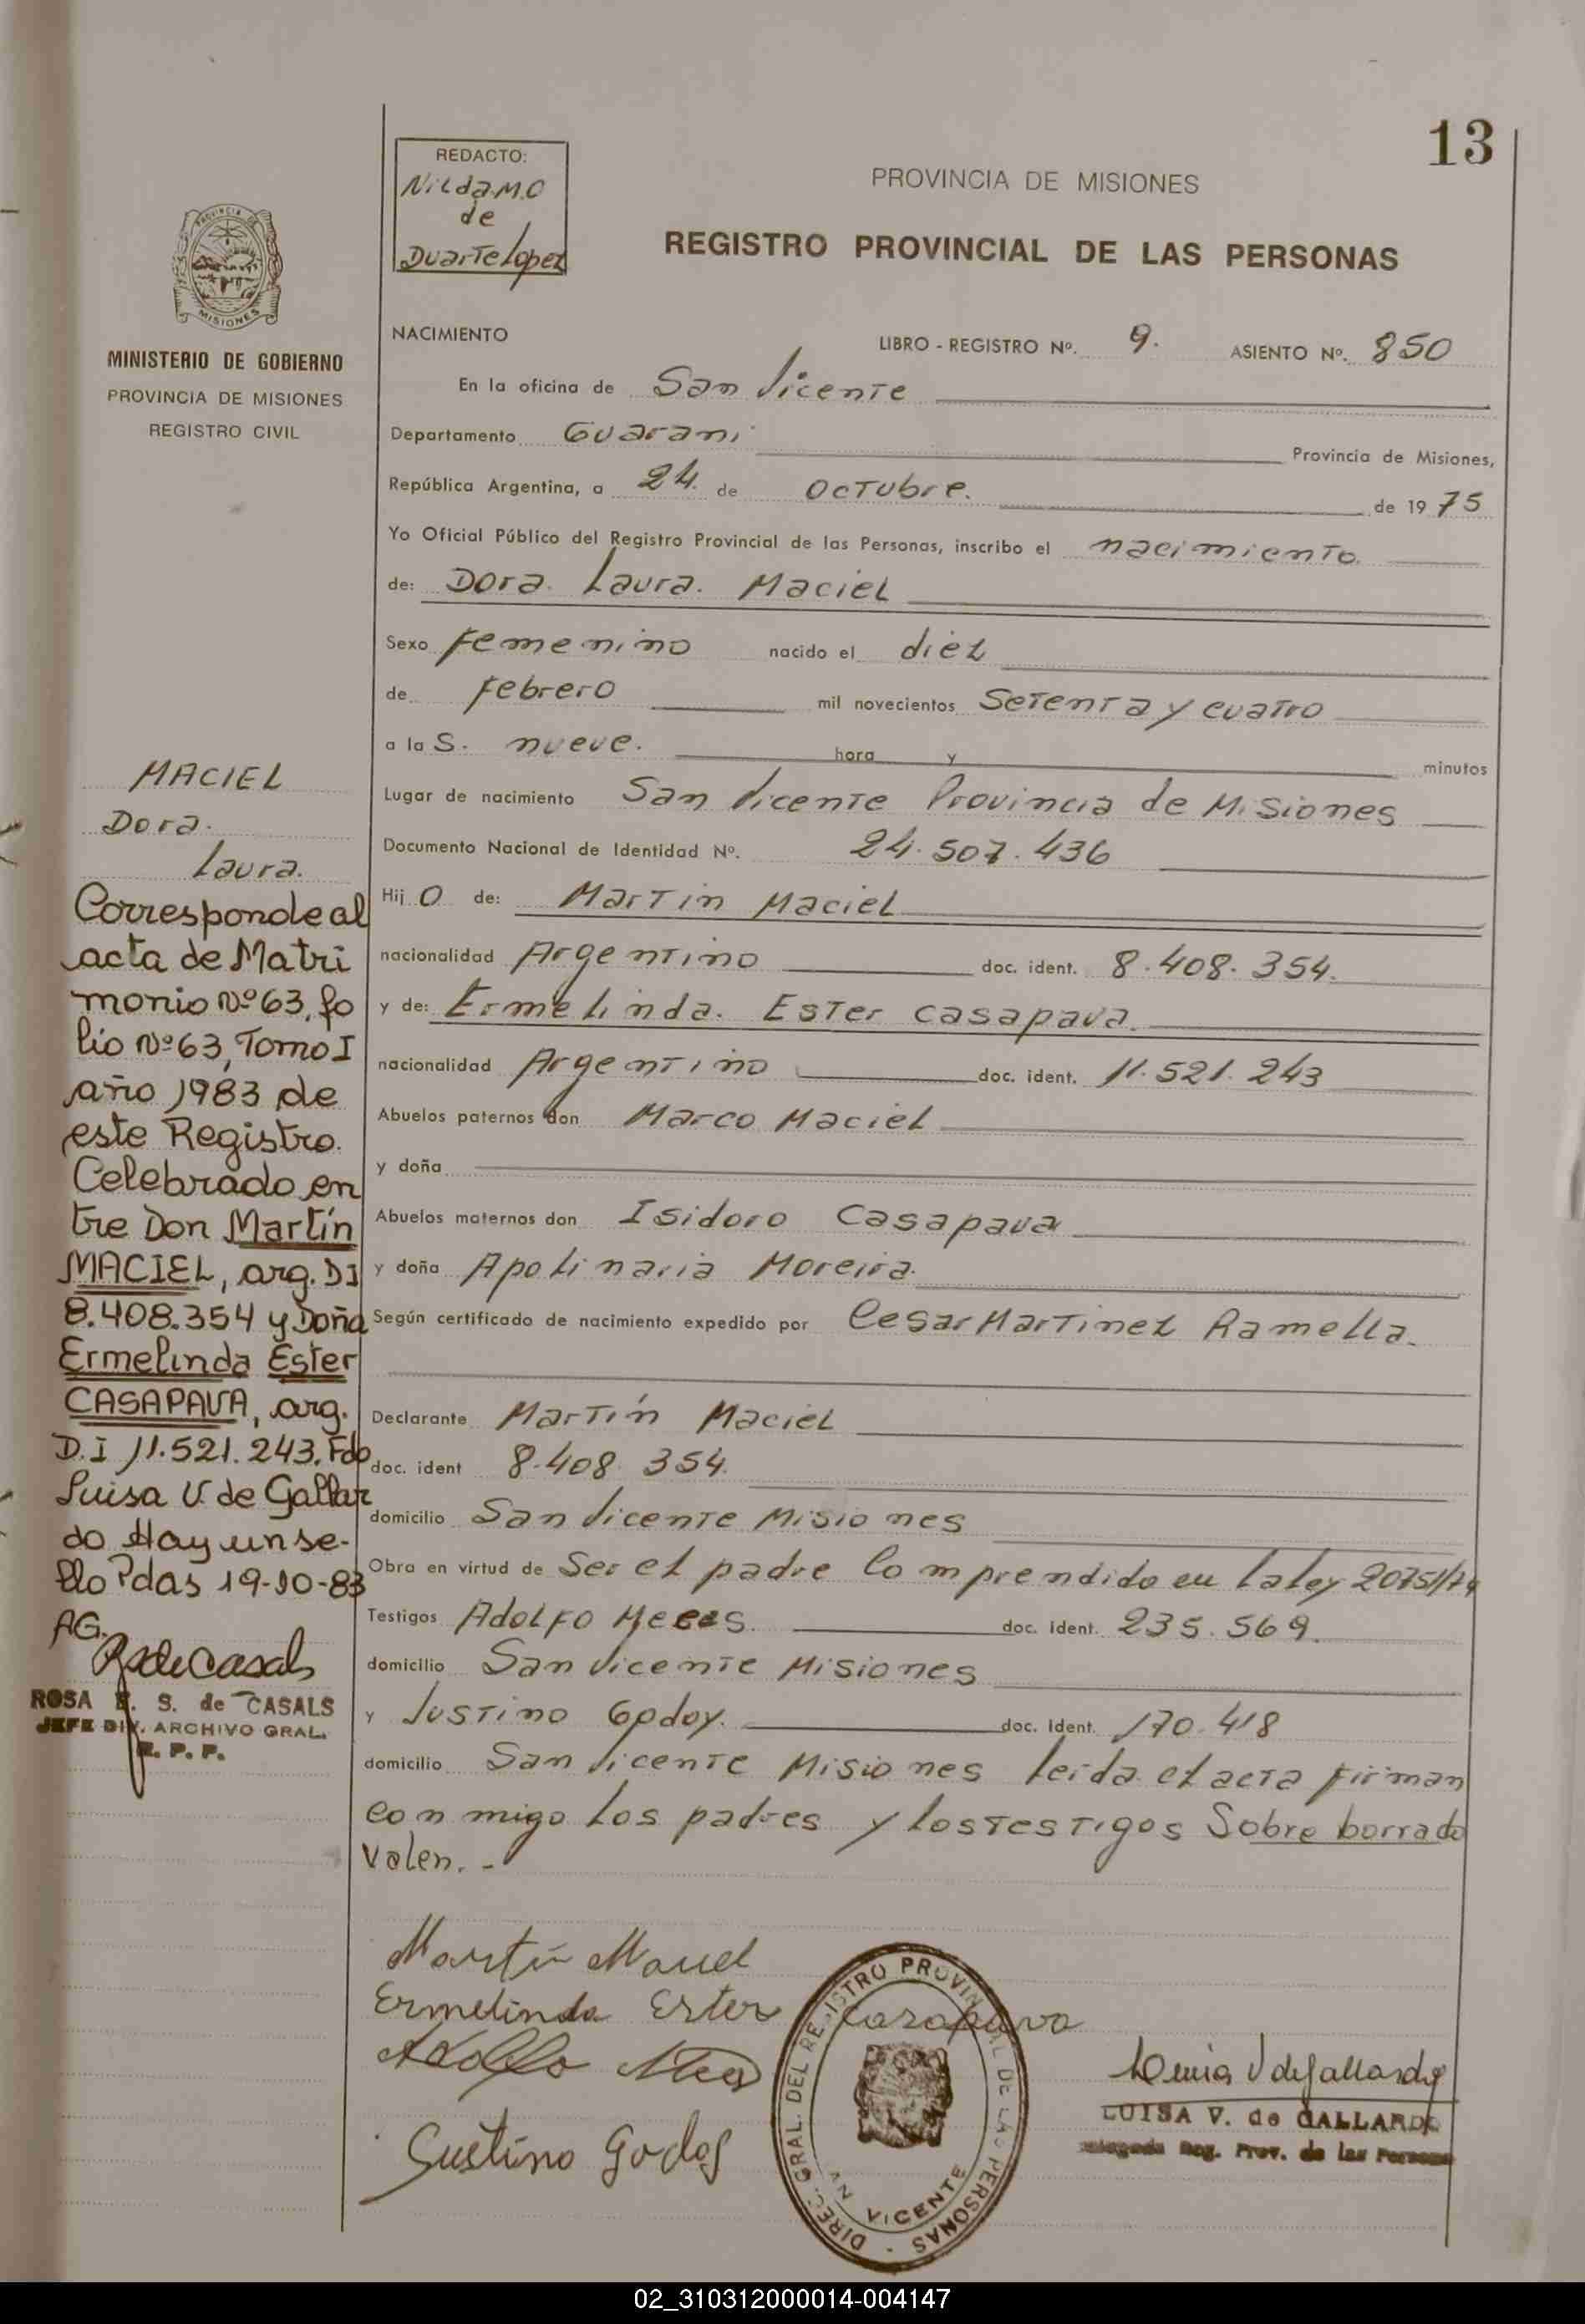 13
REDACTO:
Nilda M.O
de
Duarte Lopez
PROVINCIA DE MISIONES
REGISTRO PROVINCIAL DE LAS PERSONAS
PROVINCIA DE
MISIONES
MINISTERIO DE GOBIERNO
PROVINCIA DE MISIONES
REGISTRO CIVIL
NACIMIENTO LIBRO - REGISTRO Nº. 9. ASIENTO Nº. 850
En la oficina de San Vicente
Departamento Guarani Provincia de Misiones,
República Argentina, a 24 de Octubre. de 19 75
Yo Oficial Público del Registro Provincial de las Personas, inscribo el nacimiento
de: Dora Laura. Maciel
Sexo Femenino nacido el diez
de Febrero mil novecientos Setenta y cuatro
a la S. nueve. hora y minutos
Lugar de nacimiento San Vicente Provincia de Misiones
Documento Nacional de Identidad Nº. 24.507.436
Hij o de: Martin Maciel
nacionalidad Argentino doc. ident. 8.408.354.
y de: Ermelinda. Ester casapava.
nacionalidad Argentino doc. ident. 11.521.243
Abuelos paternos don Marco Maciel
y doña
Abuelos maternos don Isidoro Casapava
y doña Apolinaria Moreira.
Según certificado de nacimiento expedido por Cesar Martinez Ramella.
Declarante Martín Maciel
doc. ident 8.408.354.
domicilio San Vicente Misiones
Obra en virtud de Ser el padre Comprendido en la ley 20751/74
Testigos Adolfo doc. ident. 235.569.
domicilio San Vicente Misiones
y Justino Godoy. doc. ident. 170.418
domicilio San Vicente Misiones leida el acta firman
conmigo los padres y los testigos Sobre borrado
Valen. -
MACIEL
Dora.
Laura.
Corresponde al
acta de Matri
monio Nº 63, fo
lio Nº 63, Tomo I
año 1983 de
este Registro.
Celebrado en
tre Don Martín
MACIEL, arg. DI
8.408.354 y Doña
Ermelinda Ester
CASAPAVA, arg.
D.I 11.521.243. Fdo
Luisa V. de Gallar
do Hay un se-
llo Pdas 19-10-83
AG.
RsdeCasals
ROSA E. S. de CASALS
JEFE DIV. ARCHIVO GRAL.
R. P. P.
Martin Maciel
Ermelinda Ester Casapava
Adolfo
Gustino Godoy
DIREC. GRAL. DEL REGISTRO PROVINCIAL DE LAS PERSONAS -
SAN VICENTE
Luisa V de Gallardo
LUISA V. de GALLARDO
Delegada Reg. Prov. de las Personas
02_310312000014-004147